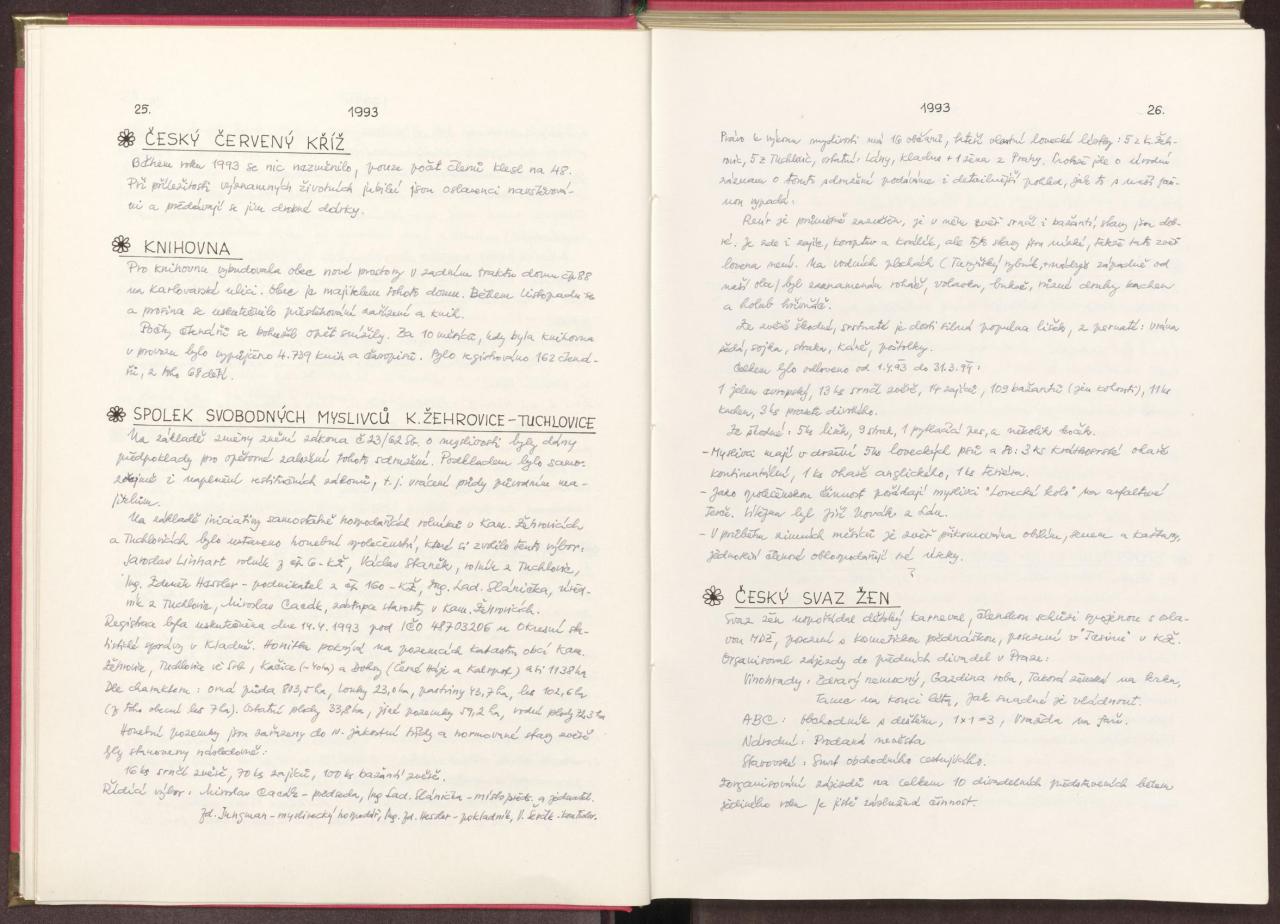 25.
1993
ČESKÝ ČERVENÝ KŘÍŽ
Během roku 1993 se nic nezměnilo, pouze počet členů klesl na 48.
Při příležitosti významných životních jubileí jsou oslavenci navštívová-
ni a předávají se jim drobné dárky.
KNIHOVNA
Pro knihovnu vybudovala obec nové prostory v zadním traktu domu čp 88
na Karlovarské ulici. Obec je majitelem tohoto domu. Během listopadu se
a prosina se uskutečnilo přestěhování zařízení a knih.
Počty čtenářů se bohužel opět snížily. Za 10 měsíců, kdy byla knihovna
v provozu bylo vypůjčeno 4.739 knih a časopisů. Bylo registrováno 162 čtená-
řů, z toho 68 dětí.
SPOLEK SVOBODNÝCH MYSLIVCŮ K. ŽEHROVICE-TUCHLOVICE
Na základě změny znění zákona č 23/62 Sb. o myslivosti byly dány
předpoklady pro opětovné založení tohoto sdružení. Podkladem bylo samo-
zřejmě i naplnění restitučních zákonů, t.j. vrácení půdy původním ma-
jitelům.
Na základě iniciativy samostatně hospodařících rolníků v Kam. Žehrovicích
a Tuchlovicích bylo ustaveno honební společenství, které si zvolilo tento výbor:
Jaroslav Linhart rolník z čp. 6 - KŽ, Václav Staněk, rolník z Tuchlovic,
Ing. Zdeněk Hessler - podnikatel z čp 160 - KŽ, Ing. Lad. Slánička, úřed-
ník z Tuchlovic, Miroslav Cacák, zástupce starosty v Kam. Žehrovicích.
Registrace byla uskutečněna dne 14.4. 1993 pod IČO 48703206 u Okresní sta-
tistické správy v Kladně. Honitba pokrývá na pozemcích katastru obcí Kam.
Žehrovice, Tuchlovice vč Srb, Kačice (-40ha) a Doksy (Černé Háje a Kalspot) asi 1138 ha
Dle charakteru: orná půda 803,5 ha, louky 23,0 ha, pastviny 43,7 ha, les 102,6 ha
(z toho obecní les 7 ha). Ostatní plochy 33,8 ha, jiné pozemky 59,2 ha, vodní plochy 72,3 ha
Honební pozemky jsou zařazeny do IV. jakostní třídy a normované stavy zvěře
byly stanoveny následovně:
16 ks srnčí zvěře, 70 ks zajíců, 100 ks bažantí zvěře.
Řídící výbor: Miroslav Cacák - předseda, Ing Lad. Slánička - místopřed. a jednatel.
Zd. Jungman - myslivecký hospodář, Ing. Zd. Hessler - pokladník, V. Ševčík - kontrolor.
1993
26.
Právo k výkonu myslivosti má 16 občanů, kteří vlastní lovecké lístky: 5 z K. Žeh-
rovic, 5 z Tuchlovic, ostatní: Lány, Kladno + 1 žena z Prahy. Protože jde o úvodní
záznam o tomto sdružení podáváme i detailnější pohled, jak to s naší fau-
nou vypadá:
Revír je průměrně zazvěřen, je v něm zvěř srnčí i bažantí, stavy jsou dob-
ré. Je zde i zajíc, koroptev a králík, ale tyto stavy jsou nízké, takže tato zvěř
lovena není. Na vodních plochách (Turyňský rybník, + nádrže západně od
naší obce) byl zaznamenán roháč, volavka, bukač, různé druhy kachen
a holub hřivnáč.
Ze zvěře škodné, srstnaté je dosti silná populace lišek, z pernaté: vrána
šedá, sojka, straka, káně, poštolky.
Celkem bylo odloveno od 1.4.93 do 31.3.94:
1 jelen evropský, 13 ks srnčí zvěře, 14 zajíců, 109 bažantů (jen kohouti), 11 ks
kachen, 3 ks prasete divokého.
Ze škodné: 5 ks lišek, 9 strak, 1 pytlačící pes, a několik koček.
- Myslivci mají v držení 5 ks loveckých psů a to: 3 ks krátkosrstý ohař
kontinentální, 1 ks ohaře anglického, 1 ks teriéra.
- Jako společenskou činnost pořádají myslivci "Lovecké kolo" na asfaltové
terče. Vítězem byl Jiří Novák z Lán.
- V průběhu zimních měsíců je zvěř přikrmována obilím, senem a kaštany,
jednotliví členové obhospodařují své úseky.
ČESKÝ SVAZ ŽEN
Svaz žen uspořádal dětský karneval, členskou schůzi spojenou s osla-
vou MDŽ, posezení s kosmetickou přednáškou, posezení v "Tesině" v KŽ.
Organisoval zájezdy do předních divadel v Praze:
Vinohrady: Zdravý nemocný, Gazdina roba, Taková ženská na krku,
Tanec na konci léta, Jak snadné je vládnout.
ABC: Obchodník s deštěm, 1x1=3, Vražda na faře.
Národní: Prodaná nevěsta
Stavovské: Smrt obchodního cestujícího.
Zorganisování zájezdů na celkem 10 divadelních představeních během
jediného roku je jistě záslužná činnost.